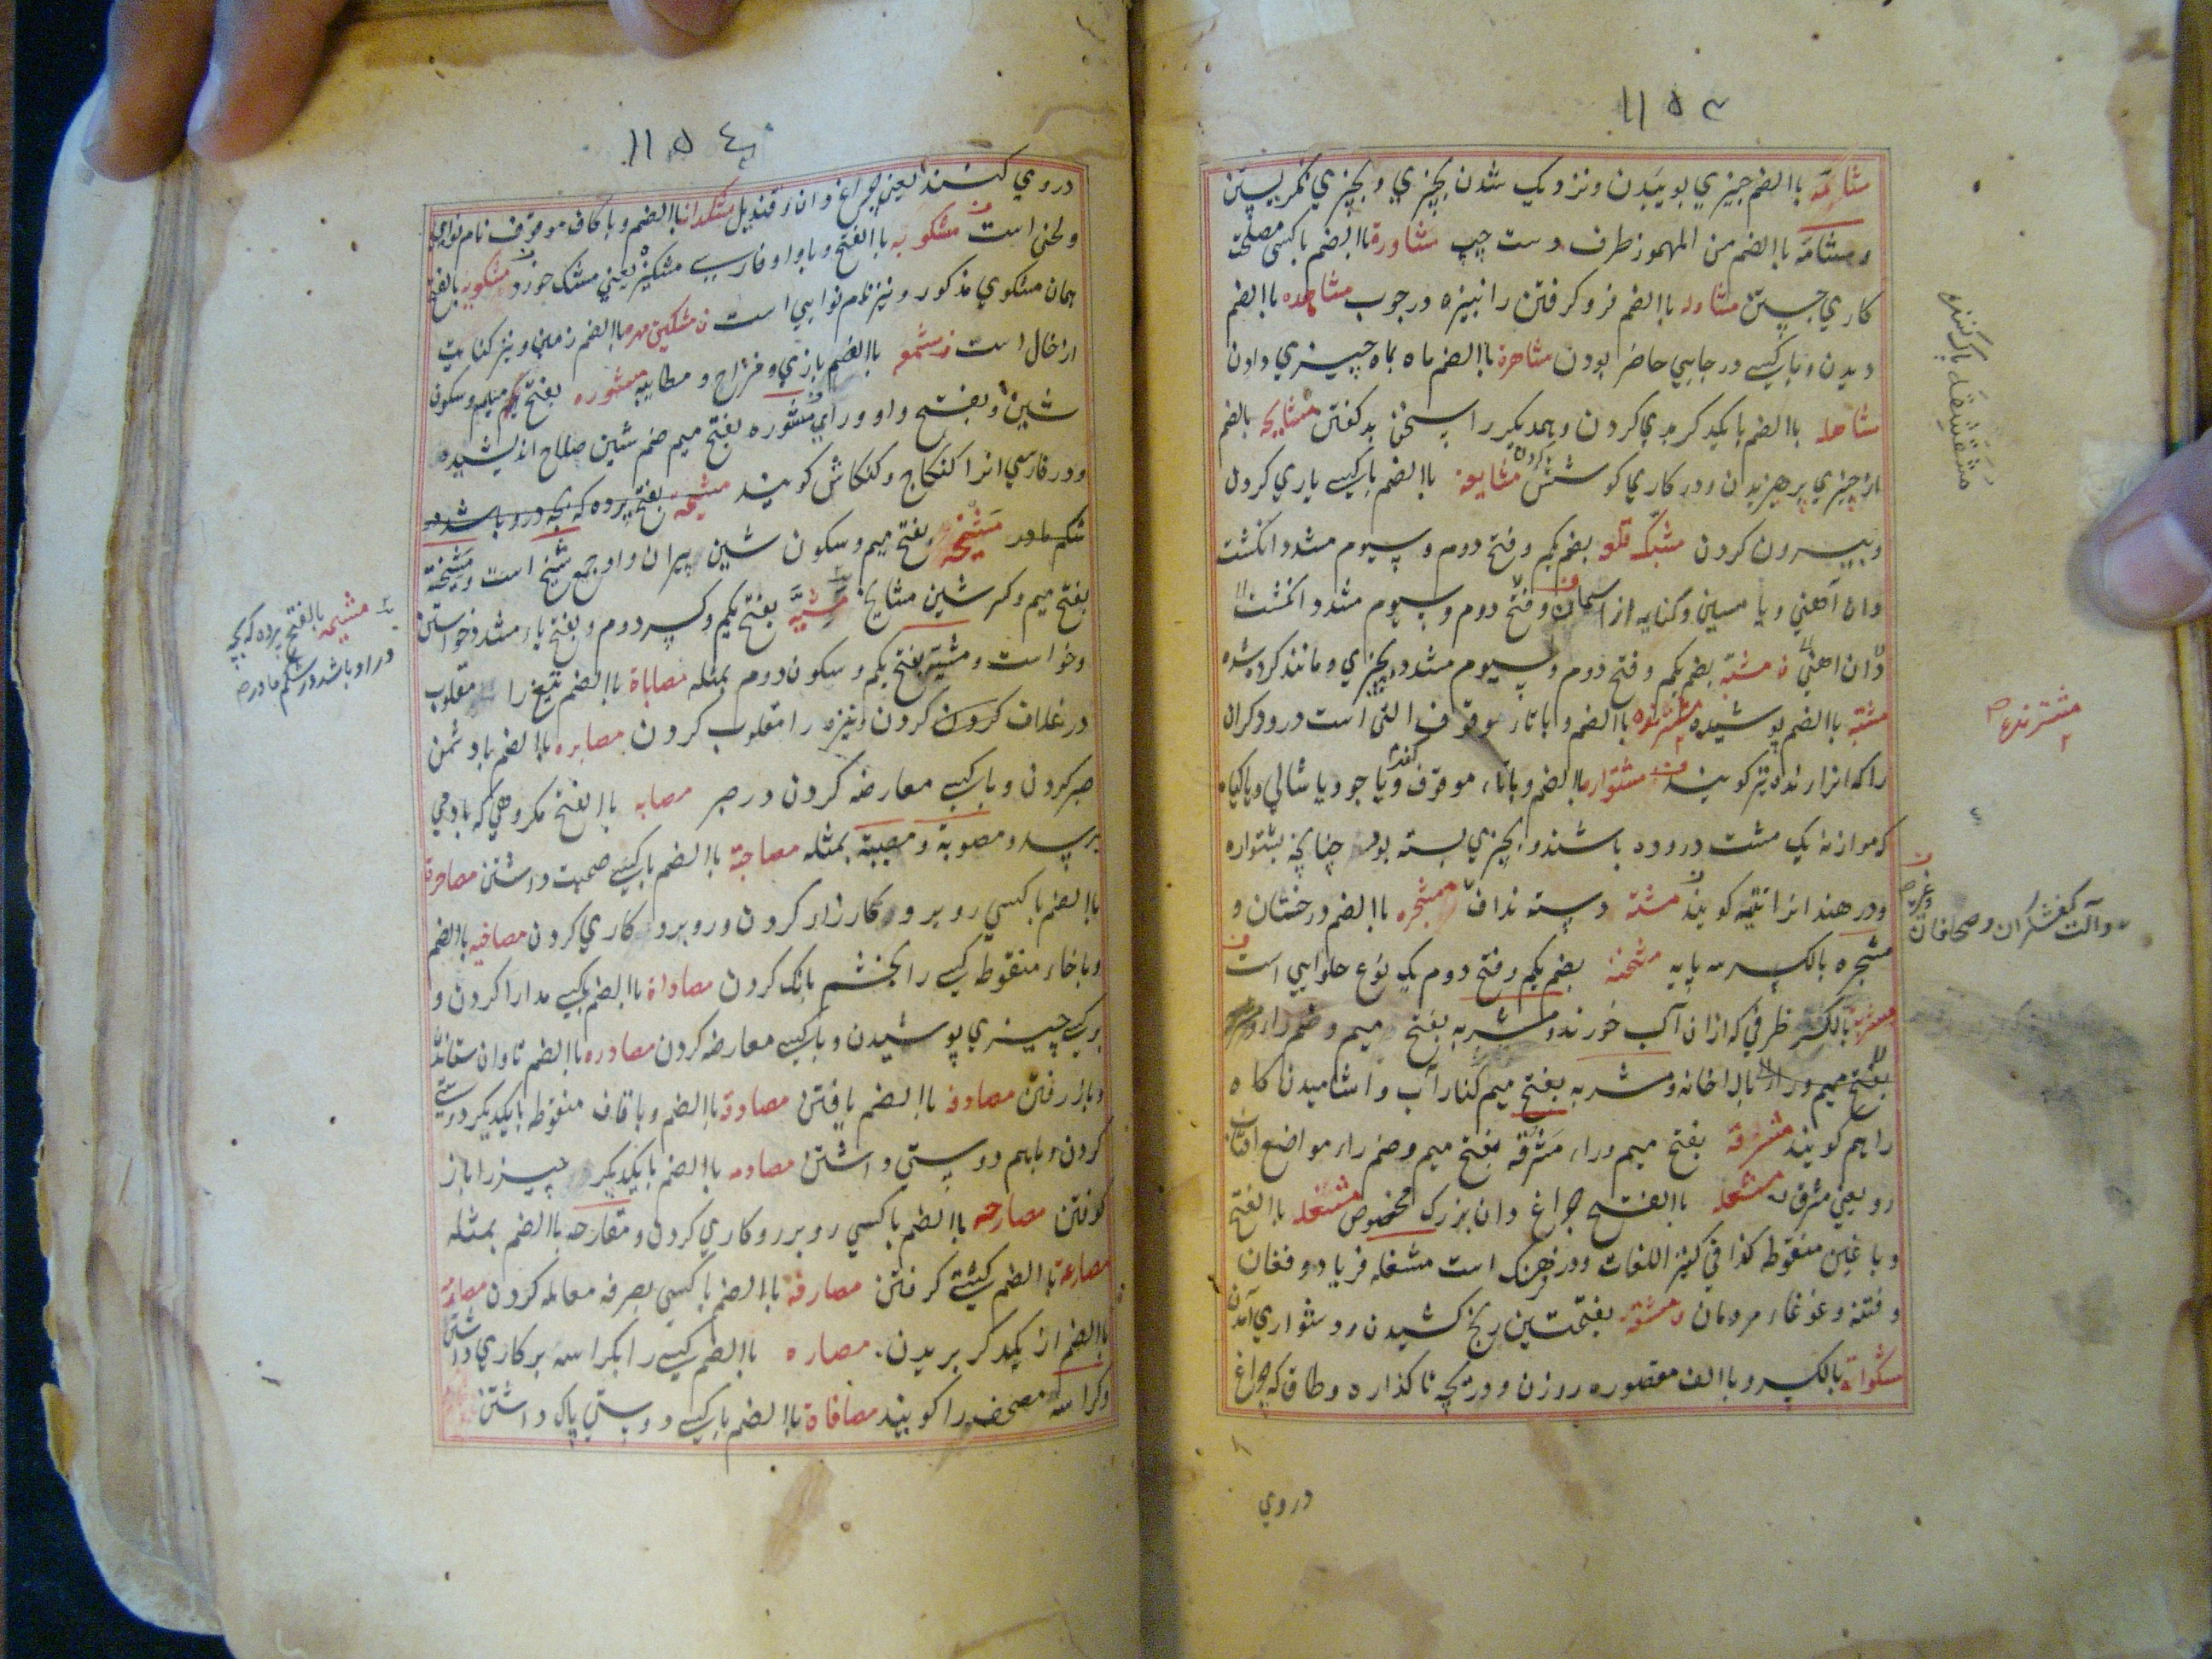 ١١٥٣
مشامّة باالضم چیزي بوییدن و نزدیک شدن بچیزي و بچیزي نگریستن
و مشامّة باالضم من المهموز طرف دست چپ مشاورة باالضم باکسی مصلحت
کاري جستن مشاوله باالضم فرو کرفتن را نیزه در جوب مشاهده باالضم
دیدن و باکسے در جایي حاضر بودن مشاهرة باالضم ماه بماه چیزي دادن
مشاهله باالضم بایکدکر بدي کردن و همدیکر را سخن بد کفتن مشایحه بالضم
از چیزي پرهیزیدن و در کاري کوشش کردن مشایعة باالضم باکسے یاري کردن
و بیرون کردن مشبک قلعه بضم یکم و فتح دوم و سیوم مشدد انکشت
دان آهني و یا مسین و کنایه از آسمان و فتح دوم و سیوم مشدد انکشت
دان اهني مشبّه بضم یکم و فتح دوم و سیوم مشدد بچیزي مانند کرده شده
مشتبه باالضم پوشیده باالضم و باتاء موقوف التي است درودکران
را که انرا رنده نیز کویند مشتواره باالضم و باتاء موقوف و یا جو و یا شالي و یا کیاه
که موازنه یک مشت دروده باشند و بچیزي بسته بود چنانچه پشتواره
و در هند انرا کویند مشته دسته نداف مشجره باالضم درختان و
مشجره بالکسر سه پایه مشحنه بضم یکم و فتح دوم یک نوع حلوایي است
مشربه بالکسر ظرفي که ازان آب خورند و مشربه بفتح میم و ضم راء
بفتح میم و راء بالاخانه و مشربه بفتح میم کنار آب و اشامیدن کاه
را هم کویند مشرقة بفتح میم و راء مشرقه بفتح میم و ضم راء مواضع افتاب
رو یعني مشرق مشعله باالفتح چراغ دان بزرک مخصوص مشغله باالفتح
و باغین منقوطه کذا في کنز اللغات و در فرهنک است مشغله فریاد و فغان
و فتنه و غوغاء مردمان مشقة بفتحتین رنج کشیدن و دشواري آمدن
مشکواة بالکسر و باالف مقصوره روزن و دریچه ناکذاره و طاق که چراغ
دروي
مشترنده
و آلت کفشکران و صحافان
١١٥٤
دروي کنند یعني چراغ دان و قندیل مشکدانه باالضم و باکاف موقوف نام نوایي
و لحني است مشکویه باالفتح و باواو فارسے مشکیزه یعني مشک خورد مشکویه بالفتح
همان مشکوي مذکور و نیز نام نوایي است مشکین مهره باالضم زمین و نیز کنایت
از خال است مشمعه باالفتح بازي و مزاح و مطایبه مشوره بفتح یکم میم و سکون
شین و بفتح واو و راي مشوره بفتح میم ضم شین صلاح اندیشیده
و در فارسي انرا کنکاج و کنکاش کویند مشیمة بفتح پرده که بچه درو باشد در
شکم مادر مشیخه بفتح میم و سکون شین پیران و او جمع شیخ است و مشیخة
بفتح میم و کسر شین مشایخ مشیّة بفتح یکم و کسر دوم و بفتح یاء مشدد خواستن
و خواست و مشیة بفتح یکم و سکون دوم بمثله مصاباة باالضم تیغ را مقلوب
در غلاف کردن و نیزه را مقلوب کردن مصابره باالضم بادشمن
صبر کردن و باکسے معارضه کردن در صبر مصابه باالفتح مکروهي که بادمي
برسد و مصوبة و مصیبة بمثله مصاحبة باالضم باکسے صحبت داشتن مصاحرة
باالضم باکسي روبرو کارزار کردن و روبرو کاري کردن مصاخبه باالضم
و باخاء منقوطه کسے را بخشم بانک کردن مصاداة باالضم باکسے مدارا کردن و
برکسے چیزي پوشیدن و باکسے معارضه کردن مصادره باالضم تاوان ستاندن
و باز رفتن مصادفه باالضم یافتن مصادقة باالضم و باقاف منقوطه بایکدیکر دوستے
کردن و باهم دوستي داشتن مصادمه باالضم بایکدیکر چیز را باز
کوفتن مصارحه باالضم باکسي روبرو کاري کردن و مقارحه باالضم بمثله
مصارعة باالضم کشتے کرفتن مصارفه باالضم باکسي بصرفه معامله کردن مصارمه
باالضم از یکدکر بریدن مصاره باالضم کسے را بکراسه برکاري داشتن
و کراسه مصحف را کویند مصافاة باالضم باکسے دوستي پاک داشتن
مشیمه بالفتح پرده که بچه
در او باشد در شکم مادر